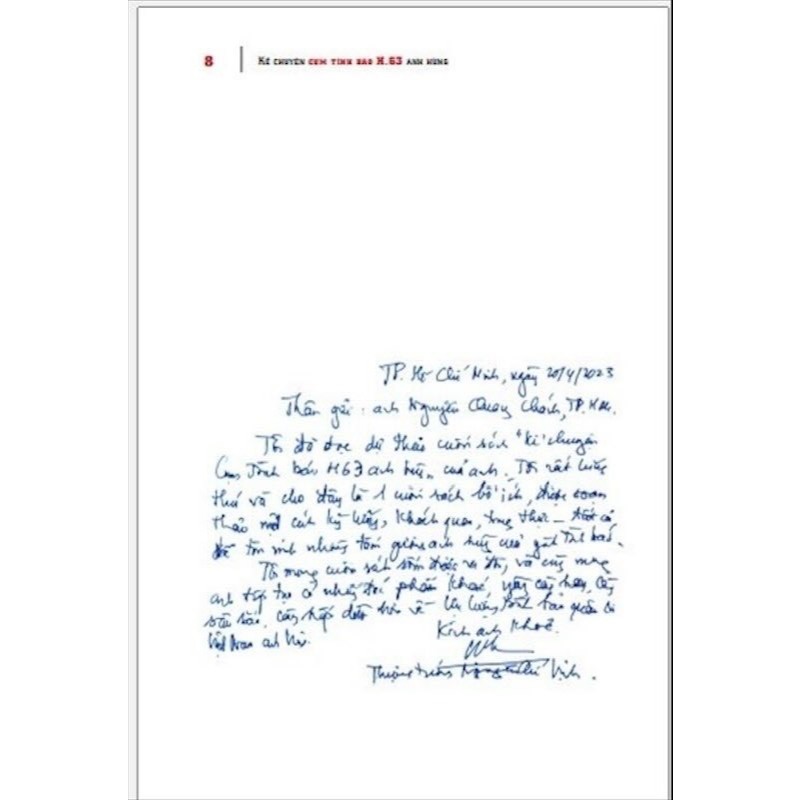 8 | KỂ CHUYỆN CỤM TÌNH BÁO H.63 ANH HÙNG
TP. Hồ Chí Minh, ngày 20/4/2023
Thân gửi: anh Nguyễn Quang Chánh, TP. HCM.
Tôi đã đọc dự thảo cuốn sách "Kể chuyện
Cụm Tình báo H63 anh hùng" của anh. Tôi rất hứng
thú và cho đây là 1 cuốn sách bổ ích, được soạn
thảo một cách kỹ lưỡng, khách quan, trung thực – tất cả
để tôn vinh những tấm gương anh hùng của ngành Tình báo.
Tôi mong cuốn sách sớm được ra đời, và cũng mong
anh tiếp tục có những tác phẩm khác, ngày càng hay, càng
sâu sắc, càng hấp dẫn hơn về lực lượng tình báo quân đội
Việt Nam anh hùng.
Kính anh khoẻ.
Thượng tướng Nguyễn Chí Vịnh.